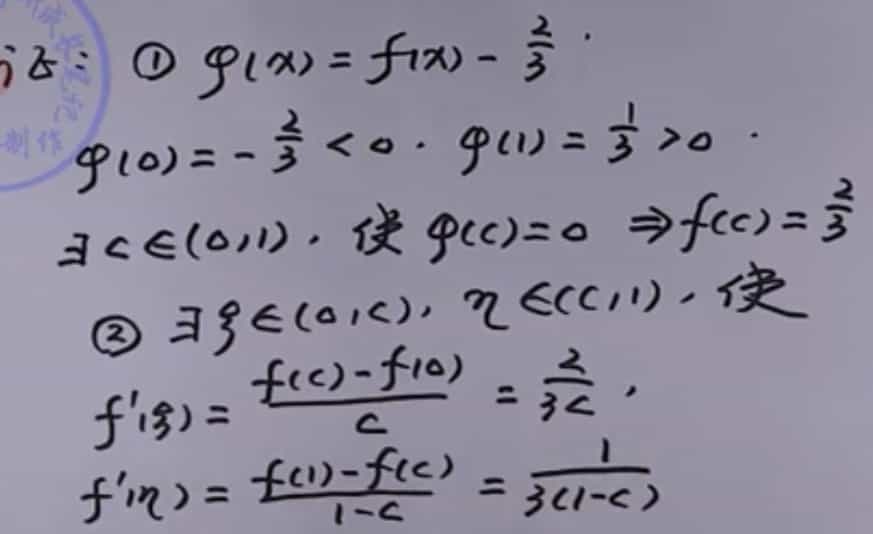 证: ① φ(x) = f(x) - 2/3 .
φ(0) = - 2/3 < 0 . φ(1) = 1/3 > 0 .
∃ c ∈ (0,1) . 使 φ(c) = 0 ⇒ f(c) = 2/3
② ∃ ξ ∈ (0,c), η ∈ (c,1) . 使
f'(ξ) = (f(c) - f(0))/c = 2/(3c) ,
f'(η) = (f(1) - f(c))/(1-c) = 1/(3(1-c))
制作